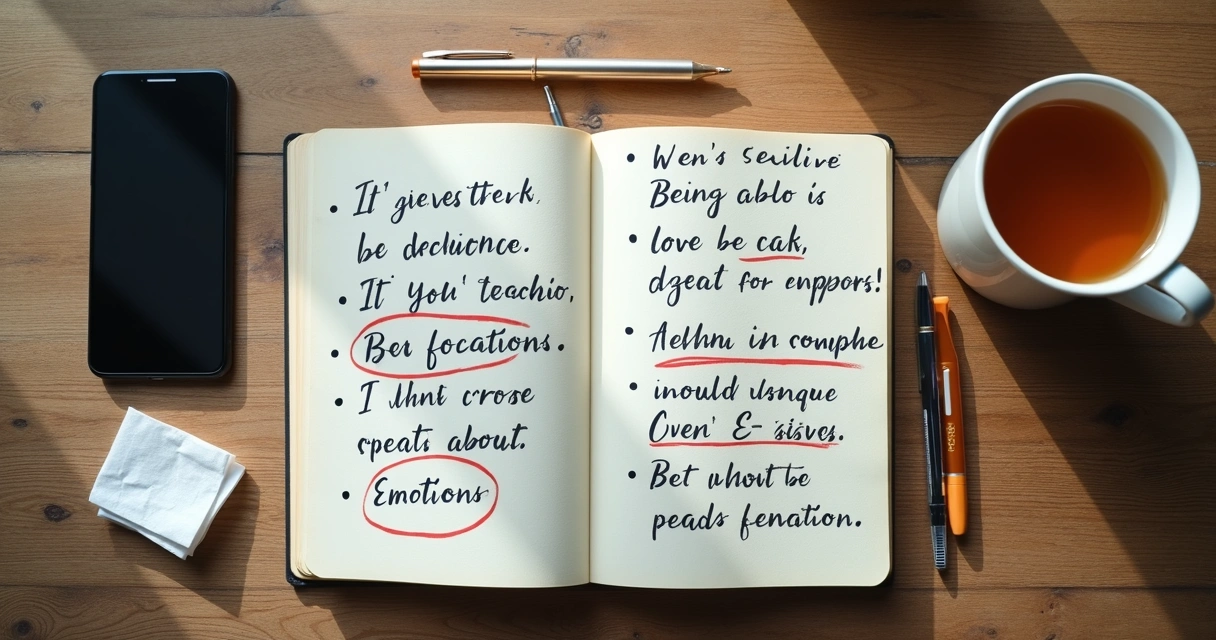 • It' gieves therk,
be dechicnce.
• It you' teachio,
• Ber focations.
• I Jhnt crose
cpeats about.
• Emotions
• Wen's Seulive
Being ablo is
• love be cak,
dgeat for enppors!
• Aelhnu in comphe
• inould usnque
Cven' E- sisves.
• Bet whout be
peads fenation.